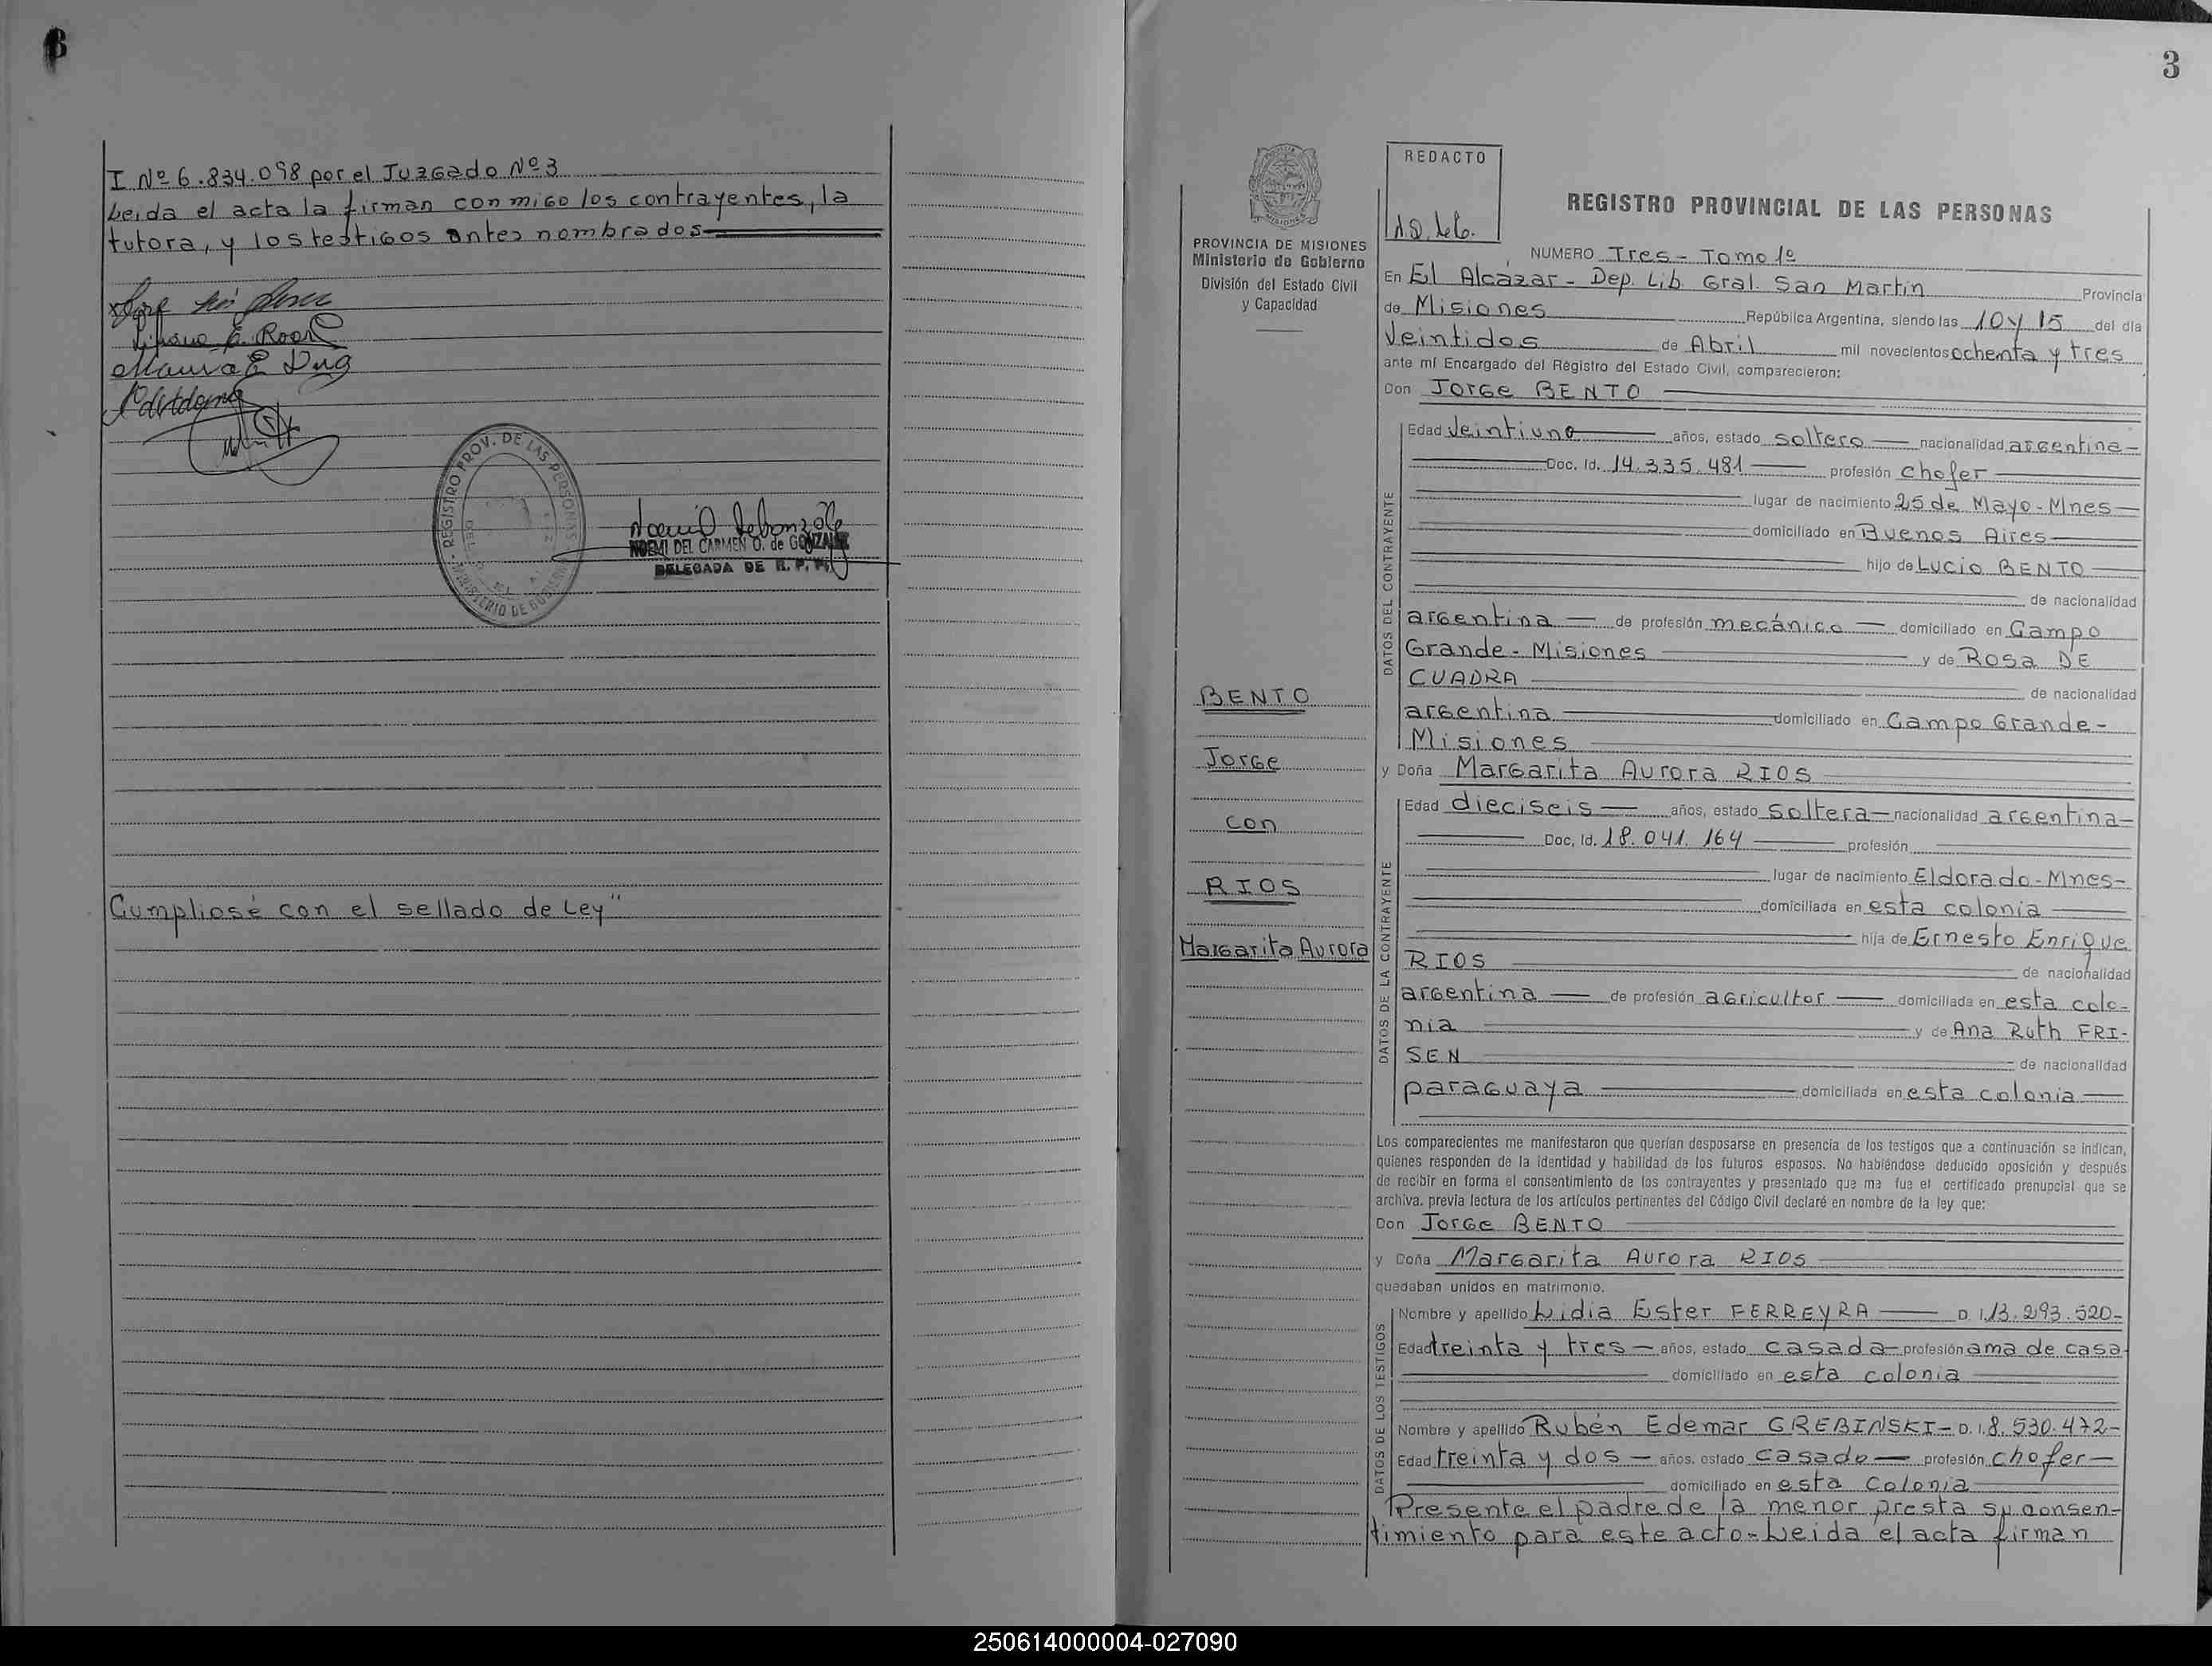 I Nº 6.834.098 por el Juzgado Nº 3
Leida el acta la firman conmigo los contrayentes, la
tutora, y los testigos antes nombrados
REGISTRO PROV. DE LAS PERSONAS
MINISTERIO DE GOBIERNO
NOEMI DEL CARMEN O. de GONZALEZ
DELEGADA DE R. P. P.
Cumpliosé con el sellado de Ley"
3
PROVINCIA DE MISIONES
Ministerio de Gobierno
División del Estado Civil
y Capacidad
REDACTO
REGISTRO PROVINCIAL DE LAS PERSONAS
NUMERO Tres - Tomo 1º
En El Alcázar - Dep. Lib. Gral. San Martin Provincia
de Misiones República Argentina, siendo las 10 y 15 del día
Veintidos de Abril mil novecientos ochenta y tres
ante mí Encargado del Registro del Estado Civil, comparecieron:
Don Jorge BENTO
DATOS DEL CONTRAYENTE
Edad Veintiuno años, estado soltero nacionalidad argentina
Doc. Id. 14.335.481 profesión chofer
lugar de nacimiento 25 de Mayo - Mnes
domiciliado en Buenos Aires
hijo de Lucio BENTO
de nacionalidad
argentina de profesión mecánico domiciliado en Campo
Grande - Misiones y de Rosa DE
CUADRA de nacionalidad
argentina domiciliado en Campo Grande -
Misiones
BENTO
Jorge
con
RIOS
Margarita Aurora
y Doña Margarita Aurora RIOS
DATOS DE LA CONTRAYENTE
Edad dieciseis años, estado soltera nacionalidad argentina
Doc. Id. 18.041.164 profesión
lugar de nacimiento Eldorado - Mnes
domiciliada en esta colonia
hija de Ernesto Enrique
RIOS de nacionalidad
argentina de profesión agricultor domiciliada en esta colo-
nia y de Ana Ruth FRI-
SEN de nacionalidad
paraguaya domiciliada en esta colonia
Los comparecientes me manifestaron que querían desposarse en presencia de los testigos que a continuación se indican,
quienes responden de la identidad y habilidad de los futuros esposos. No habiéndose deducido oposición y después
de recibir en forma el consentimiento de los contrayentes y presentado que me fue el certificado prenupcial que se
archiva, previa lectura de los artículos pertinentes del Código Civil declaré en nombre de la ley que:
Don Jorge BENTO
y Doña Margarita Aurora RIOS
quedaban unidos en matrimonio.
DATOS DE LOS TESTIGOS
Nombre y apellido Lidia Ester FERREYRA D.I. 13.293.520
Edad treinta y tres años, estado casada profesión ama de casa
domiciliado en esta colonia
Nombre y apellido Rubén Edemar GREBINSKI D.I. 8.530.472
Edad treinta y dos años, estado casado profesión chofer
domiciliado en esta colonia
Presente el padre de la menor presta su consen-
timiento para este acto - Leida el acta firman
250614000004-027090